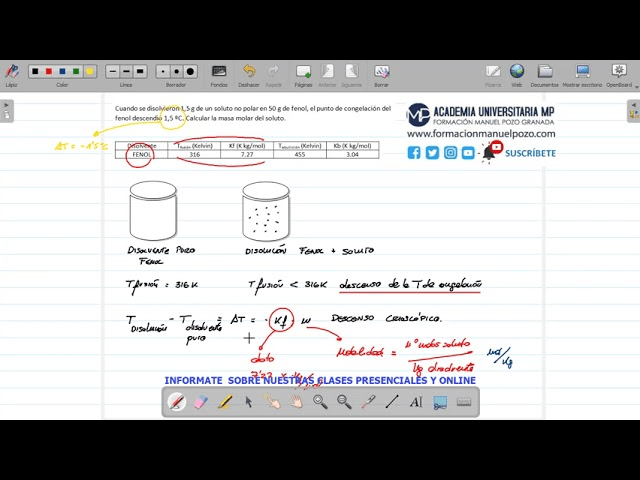 Lápiz
Color
Borrador
Fondos
Deshacer
Rehacer
Páginas
Anterior
Siguiente
Borrar
Pizarra
Web
Documentos
Mostrar escritorio
OpenBoard
Cuando se disolvieron 1,5 g de un soluto no polar en 50 g de fenol, el punto de congelación del
fenol descendió 1,5 ºC. Calcular la masa molar del soluto.
ACADEMIA UNIVERSITARIA MP
FORMACIÓN MANUEL POZO GRANADA
www.formacionmanuelpozo.com
SUSCRÍBETE
ΔT = -1'5ºC
Disolvente Tfusión (Kelvin) Kf (K kg/mol) Tebullición (Kelvin) Kb (K kg/mol)
FENOL 316 7.27 455 3.04
DISOLVENTE PURO
FENOL
DISOLUCIÓN FENOL + SOLUTO
T fusión = 316 K
T fusión < 316 K descenso de la T de congelación
T disolución - T disolvente puro = ΔT = - Kf · m DESCENSO CRIOSCÓPICO.
dato
Molalidad = nº moles soluto / Kg disolvente mol/Kg
INFORMATE SOBRE NUESTRAS CLASES PRESENCIALES Y ONLINE